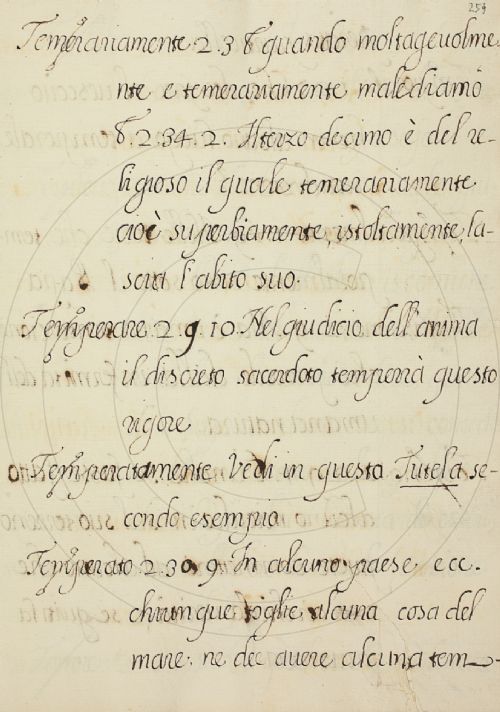 259
Temerariamente 2. 3 8 quando molta gevolme
nte e temerariamente malediamo
8. 2. 34. 2. Il terzo decimo è del re-
ligioso il quale temerariamente
cioè superbiamente, istoltamente, la-
scia l'abito suo.
Temperare 2 9 10. Nel giudicio dell'anima
il discreto sacerdoto temperrà questo
rigore
Temperatamente. Vedi in questa Tutela se-
condo esempio
Temperato 2 30 9. In alcuno paese ecc.
chiunque toglie alcuna cosa del
mare. ne dee avere alcuna tem-